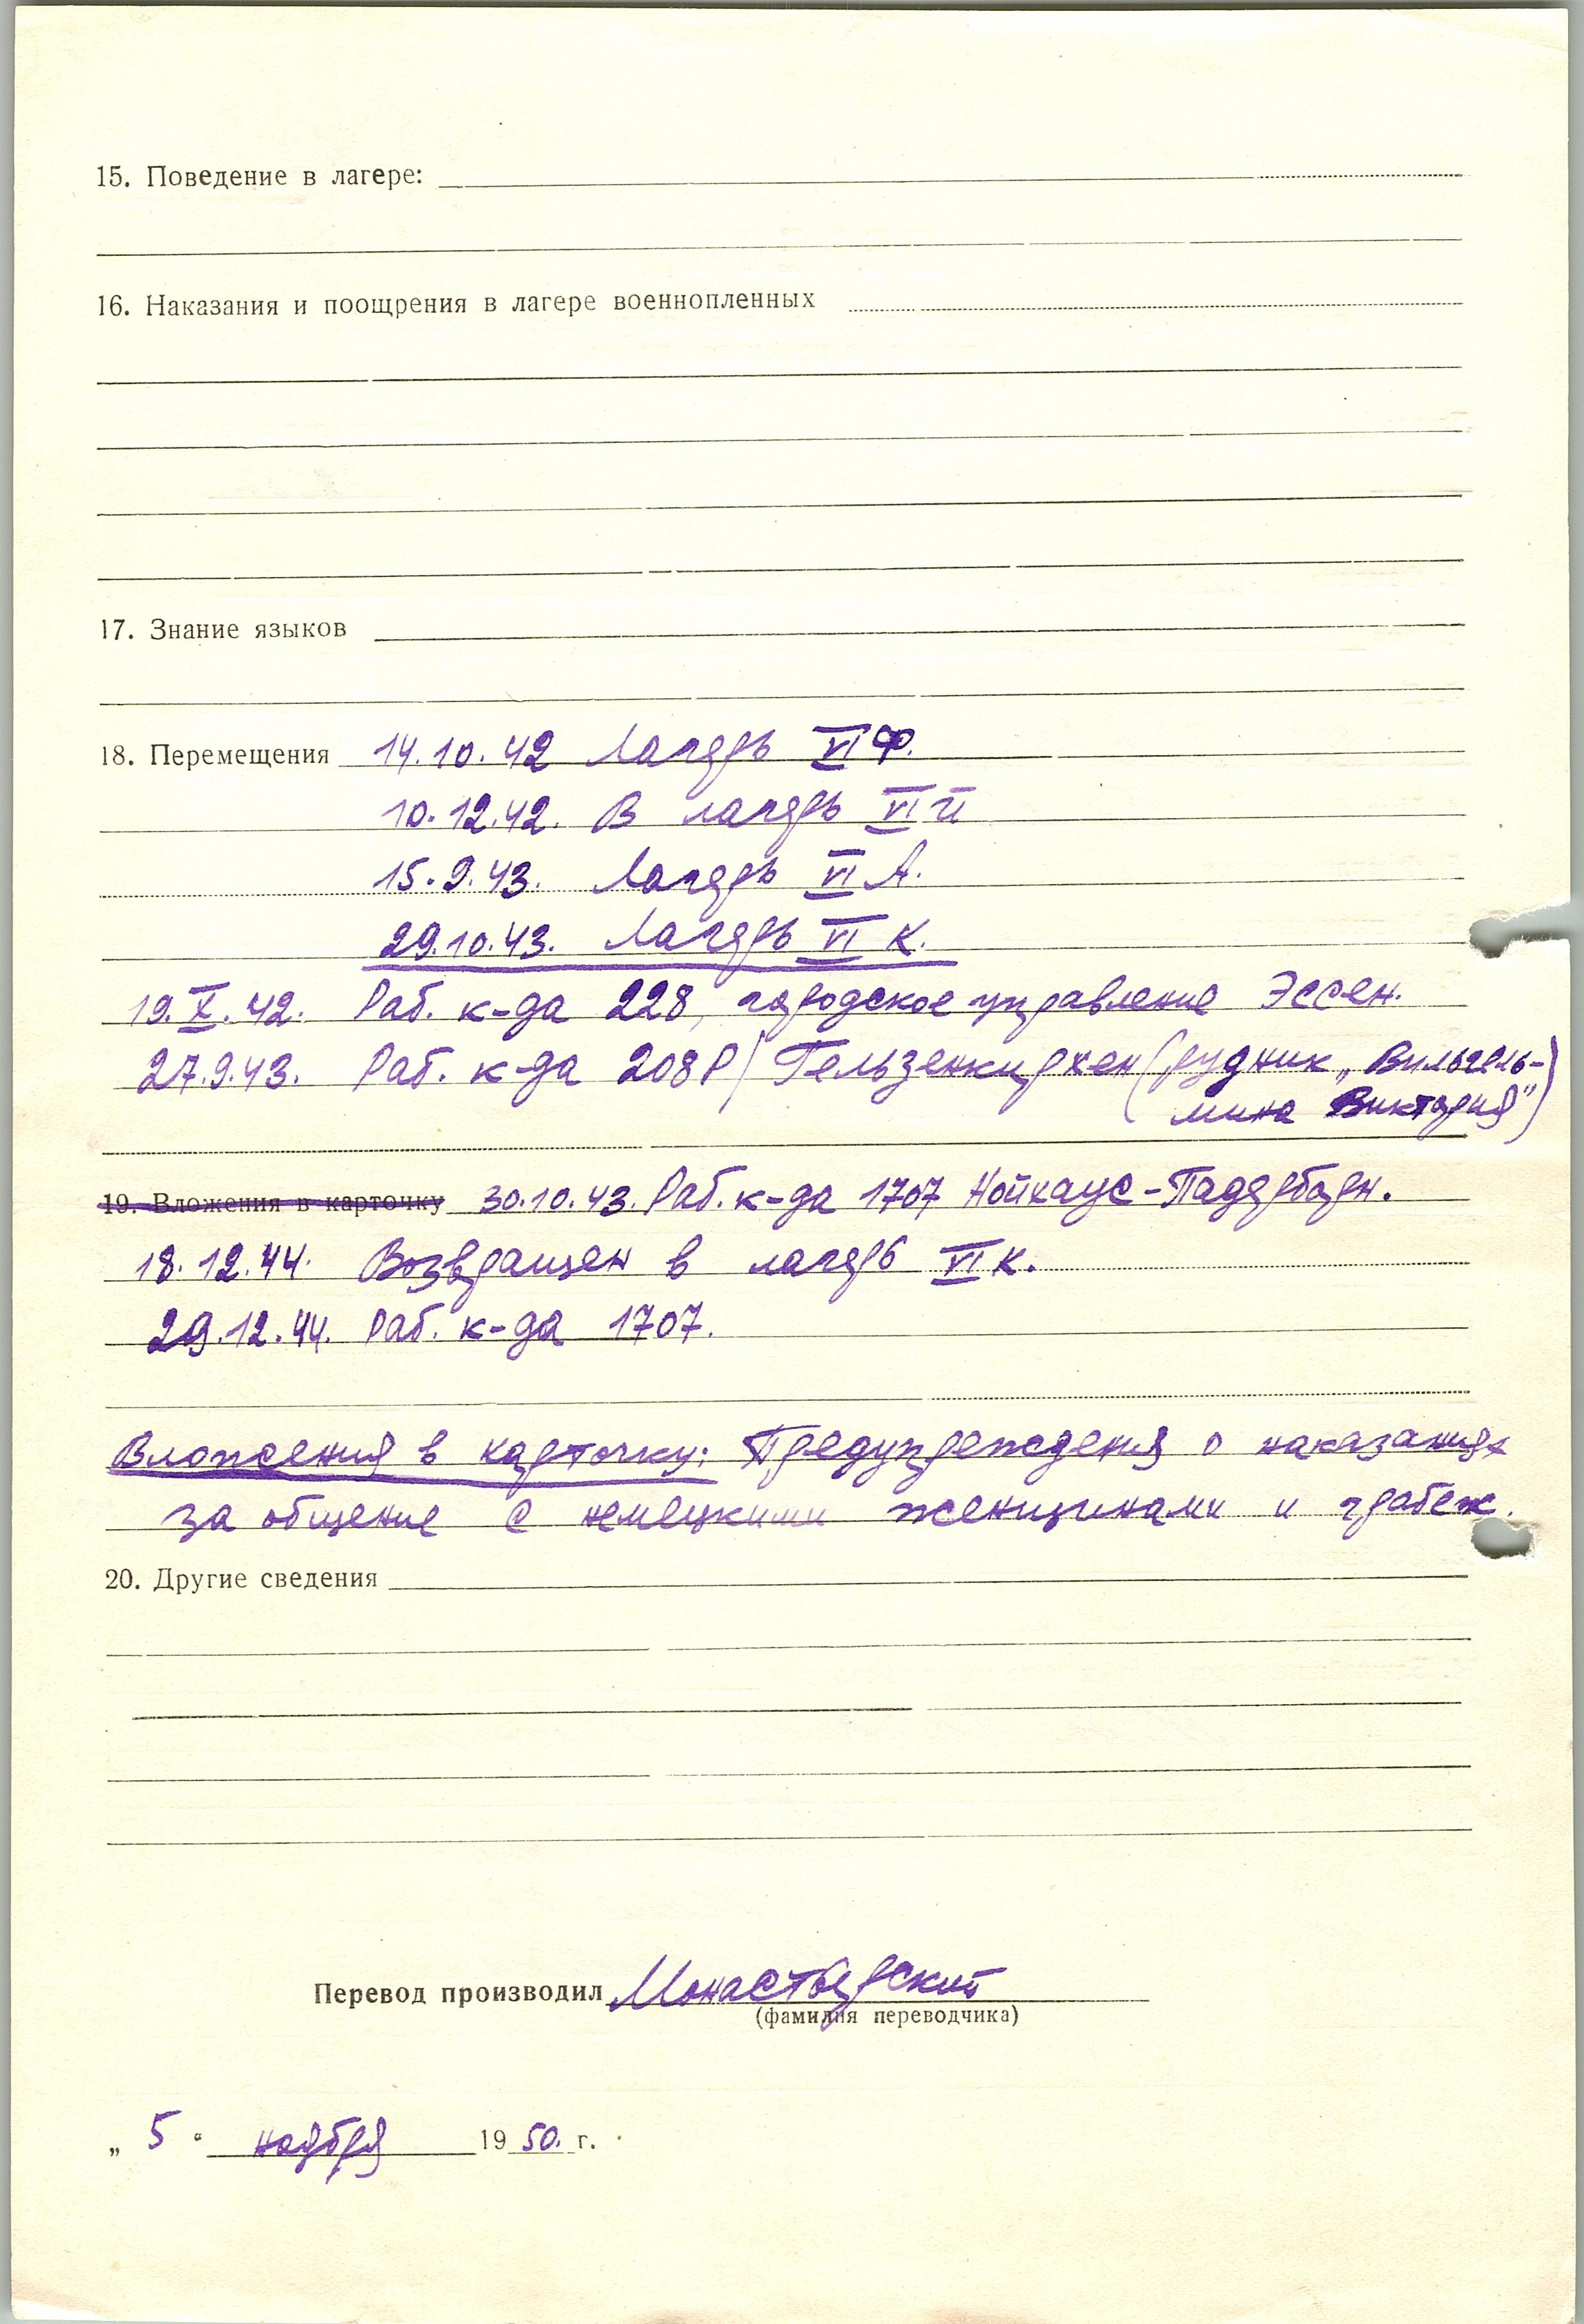 15. Поведение в лагере:
16. Наказания и поощрения в лагере военнопленных
17. Знание языков
18. Перемещения 14.10.42 Лагерь VI Ф.
10.12.42. В лагерь VI
15.9.43. Лагерь VI А.
29.10.43. Лагерь VI К.
19.X.42. Раб. к-да 228, городское управление Эссен.
27.9.43. Раб. к-да 208 Р/ Гельзенкирхен (рудник „Вильгель-
мина Виктория")
19. Вложения в карточку 30.10.43. Раб. к-да 1707 Нойхаус-Падерборн.
18.12.44. Возвращен в лагерь VI К.
29.12.44. Раб. к-да 1707.
Вложения в карточку: Предупреждения о наказаниях
за общение с немецкими женщинами и грабеж.
20. Другие сведения
Перевод производил Монастырский
(фамилия переводчика)
„ 5 " ноября 19 50. г.